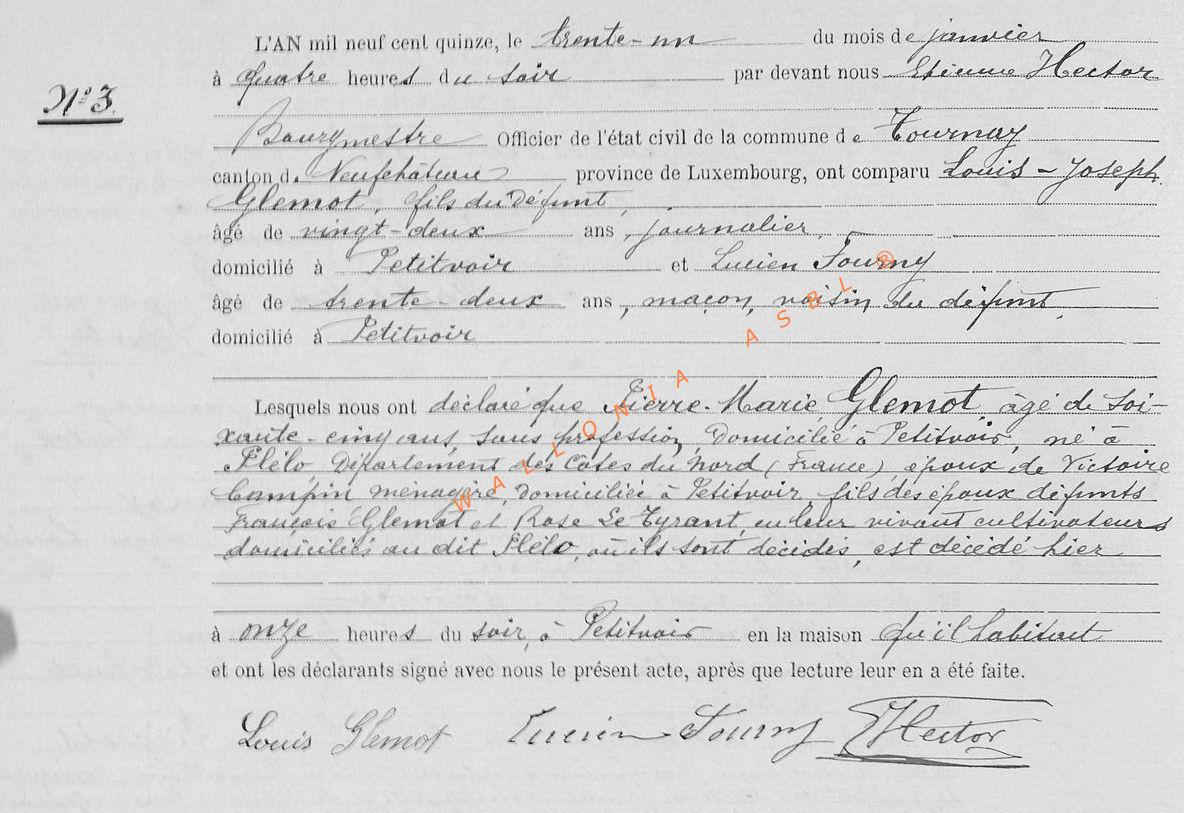 L'AN mil neuf cent quinze, le trente-un du mois de janvier
à quatre heures du soir par devant nous Etienne Hector
N° 3.
Bourgmestre Officier de l'état civil de la commune de Tournay
canton de Neufchâteau province de Luxembourg, ont comparu Louis-Joseph
Glemot, fils du défunt,
âgé de vingt-deux ans, journalier,
domicilié à Petitvoir et Lucien Tourny
âgé de trente-deux ans, maçon, voisin du défunt,
domicilié à Petitvoir
WALLONIA ASBL ®
Lesquels nous ont déclaré que Pierre-Marie Glemot, âgé de soi-
xante-cinq ans, sans profession, domicilié à Petitvoir, né à
Plélo, Département des Côtes du Nord (France), époux de Victoire
Campin, ménagère, domiciliée à Petitvoir, fils des époux défunts
François Glemot et Rose Le Tyrant, en leur vivant cultivateurs
domiciliés au dit Plélo, où ils sont décédés, est décédé hier
à onze heures du soir, à Petitvoir en la maison qu'il habitait
et ont les déclarants signé avec nous le présent acte, après que lecture leur en a été faite.
Louis Glemot Lucien Tourny EHector